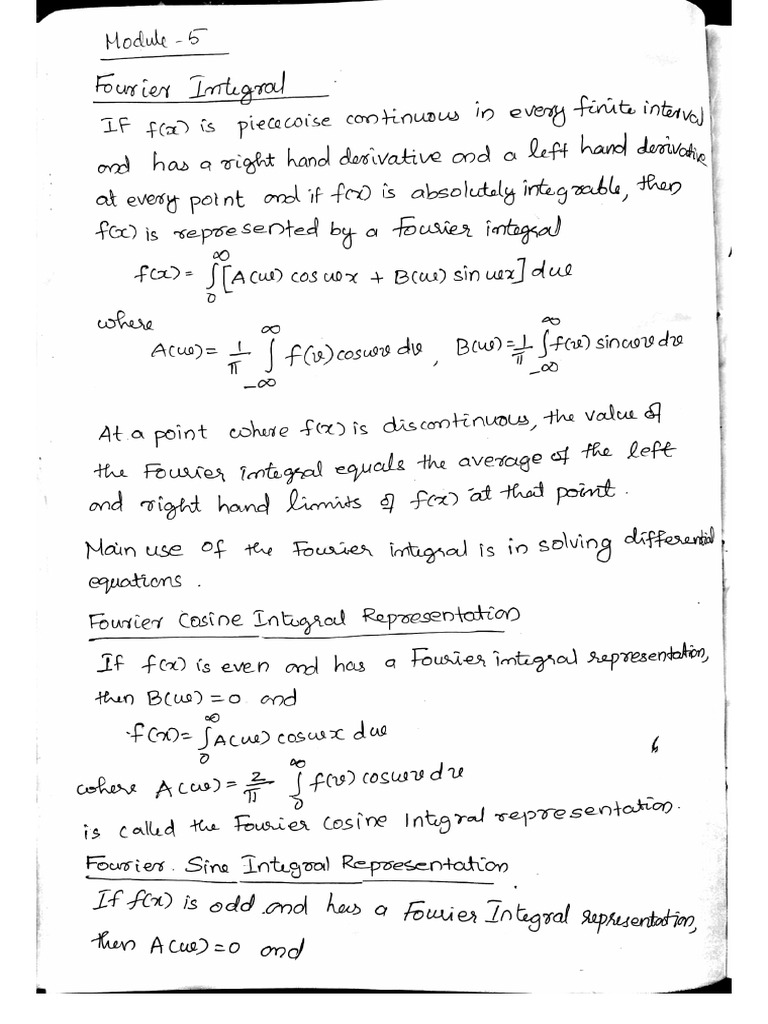 Module - 5
Fourier Integral
If f(x) is piecewise continuous in every finite interval
and has a right hand derivative and a left hand derivative
at every point and if f(x) is absolutely integrable, then
f(x) is represented by a Fourier integral
f(x) = ∫₀^∞ [A(w) cos wx + B(w) sin wx] dw
where
A(w) = 1/π ∫_{-∞}^∞ f(v) cos wv dv, B(w) = 1/π ∫_{-∞}^∞ f(v) sin wv dv
At a point where f(x) is discontinuous, the value of
the Fourier integral equals the average of the left
and right hand limits of f(x) at that point.
Main use of the Fourier integral is in solving differential
equations.
Fourier Cosine Integral Representation
If f(x) is even and has a Fourier integral representation,
then B(w) = 0 and
f(x) = ∫₀^∞ A(w) cos wx dw
where A(w) = 2/π ∫₀^∞ f(v) cos wv dv
is called the Fourier cosine Integral representation.
Fourier Sine Integral Representation
If f(x) is odd and has a Fourier Integral representation,
then A(w) = 0 and